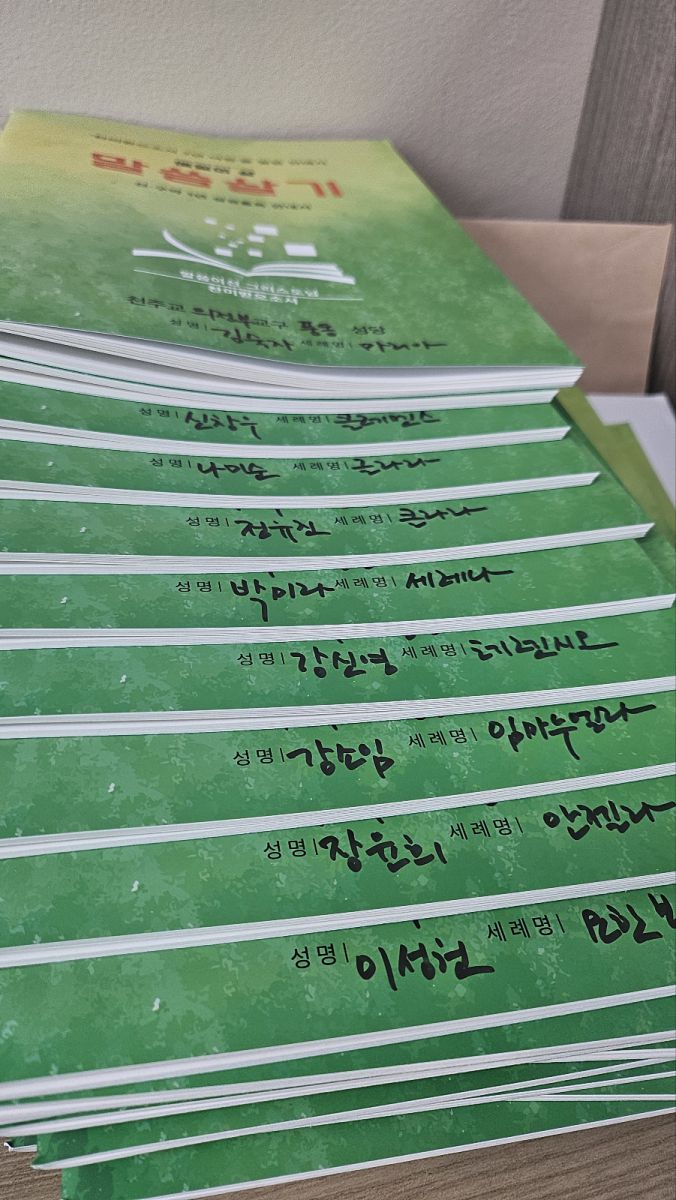 말씀살기
말씀이신 그리스도님
찬미받으소서
천주교 의정부교구 풍동 성당
성명| 김숙자 세례명| 마리아
성명| 신창우 세례명| 클레멘스
성명| 나미순 세례명| 글라라
성명| 정유진 세례명| 클라라
성명| 박미라 세례명| 세레나
성명| 강신영 세례명| 테렌시오
성명| 강소임 세례명| 임마누엘라
성명| 장윤희 세례명| 안젤라
성명| 이성현 세례명| 요한